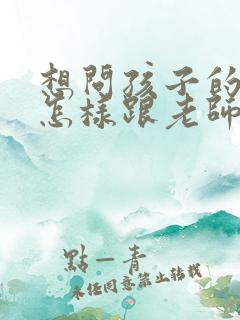 想問孩子的
怎樣跟老師
點一青
未任同意禁止轉載